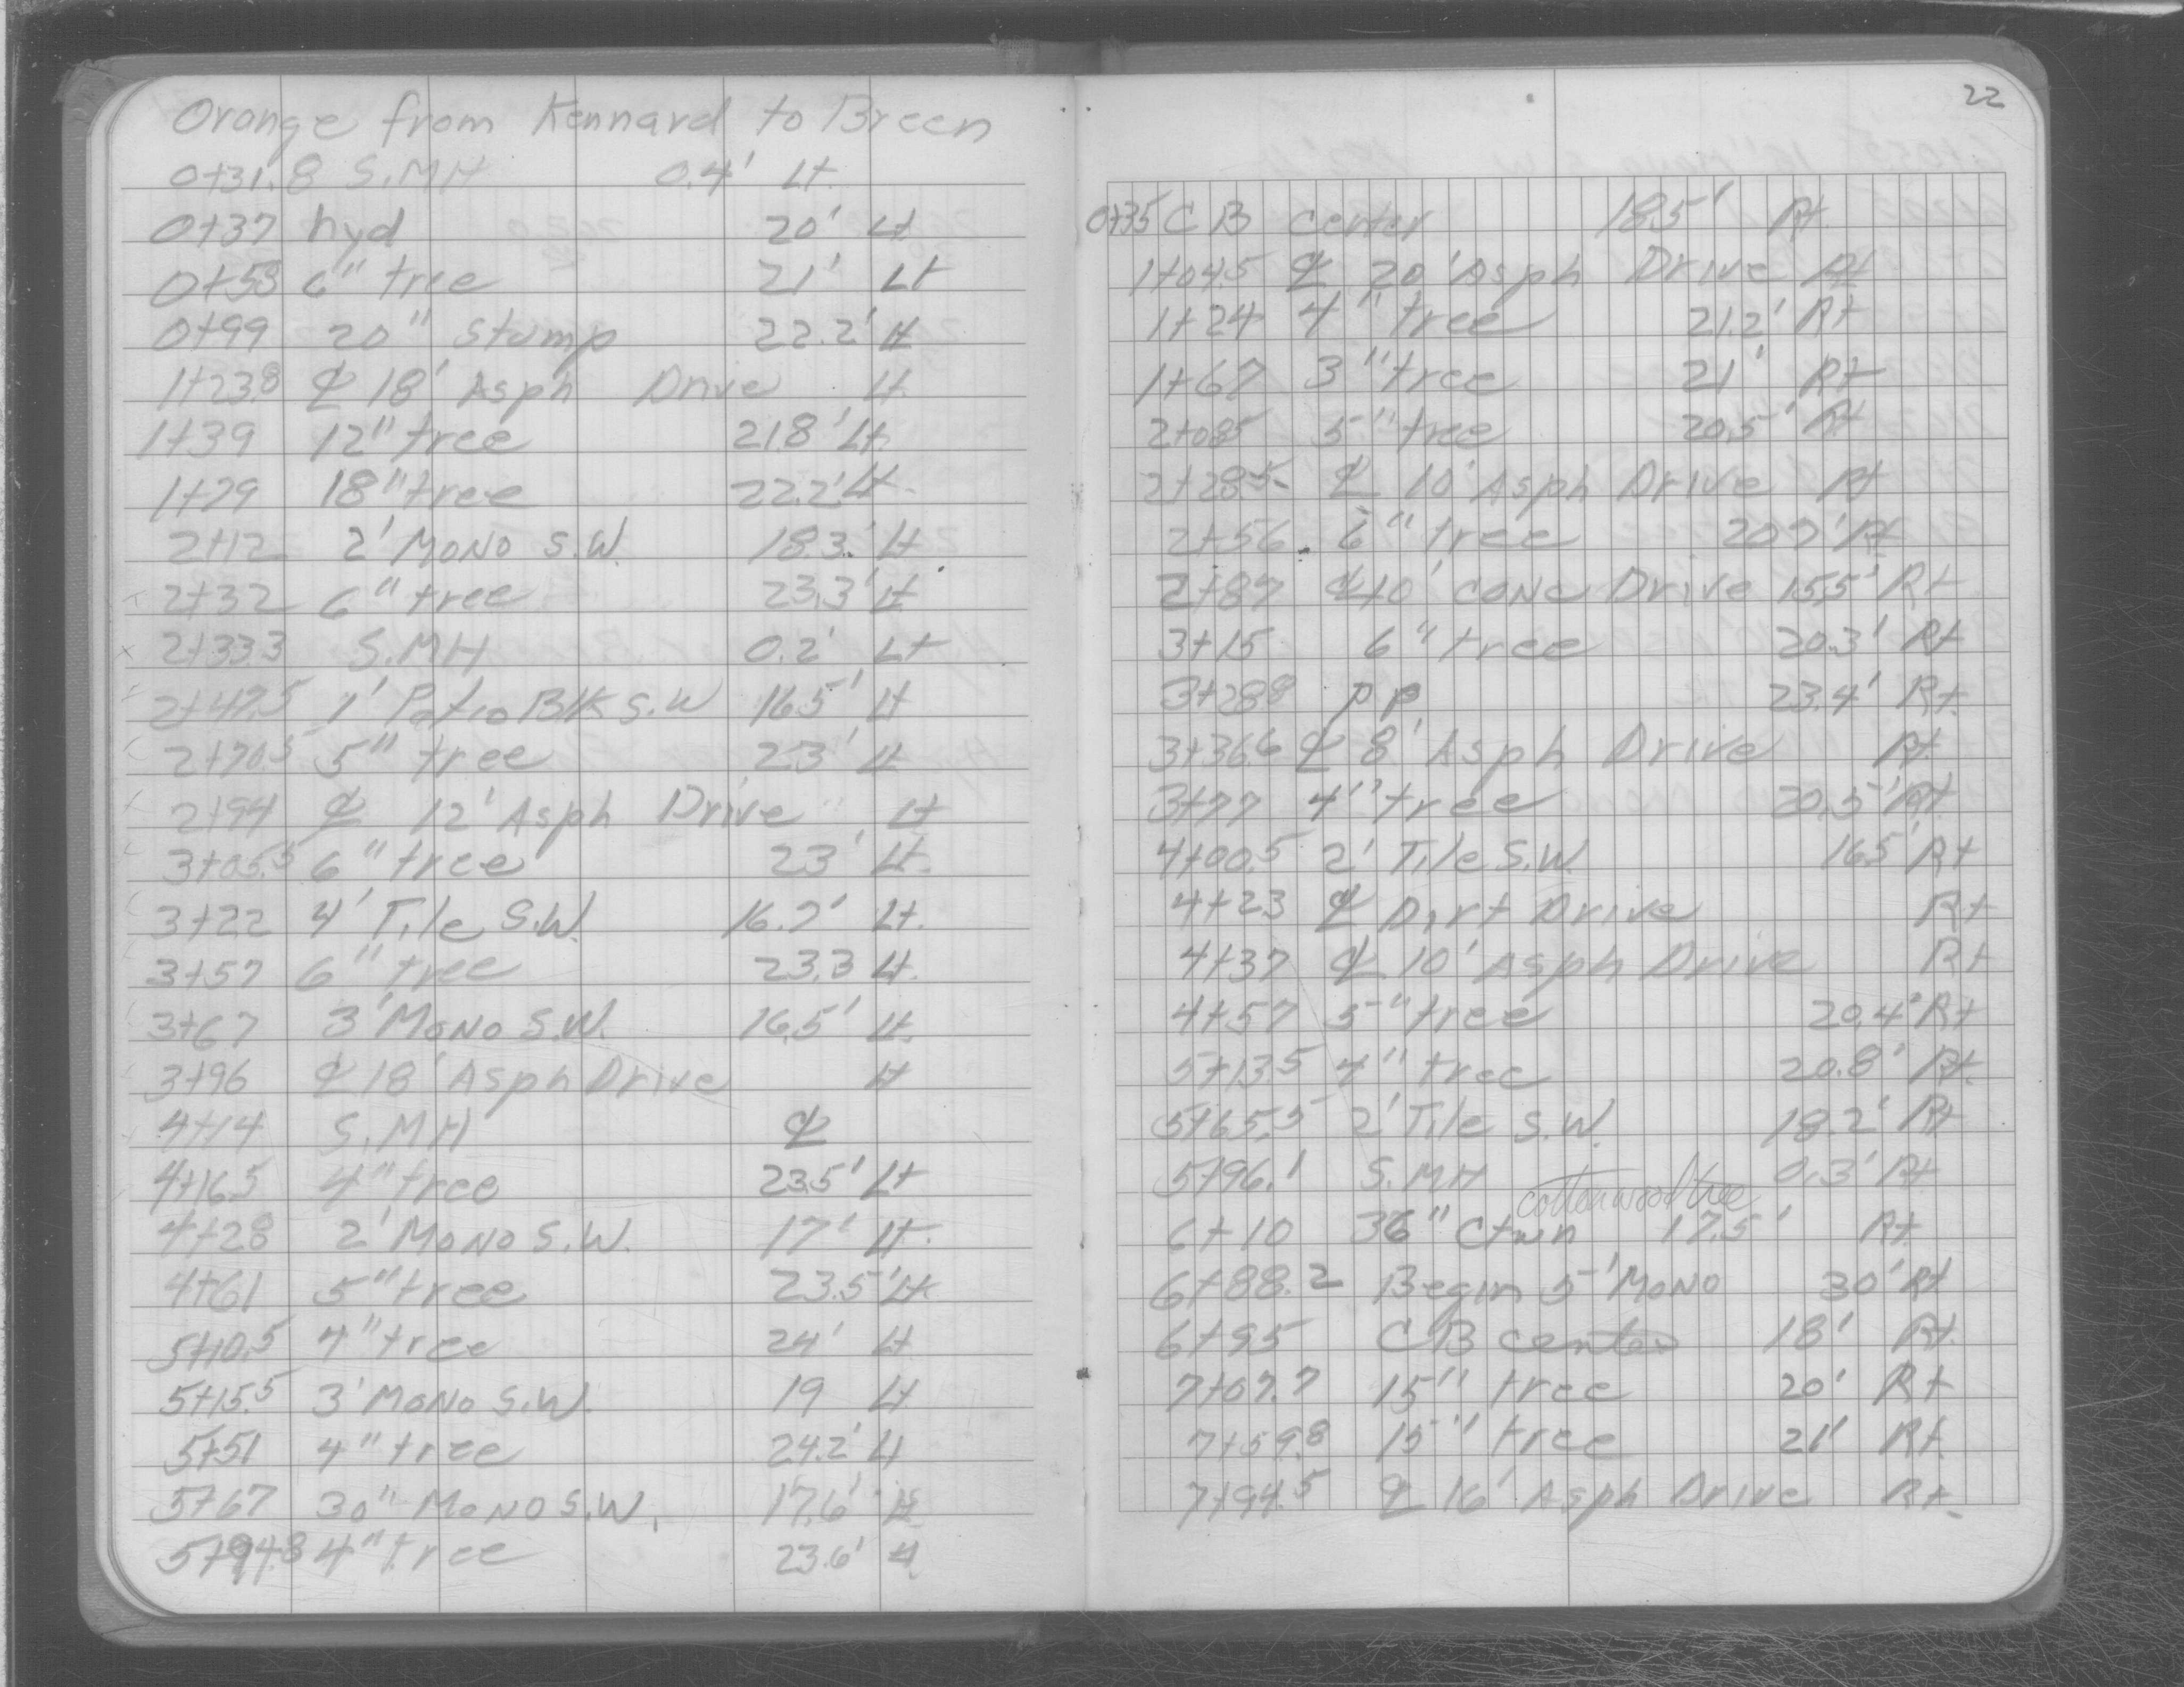 Orange from Kennard to Breen
0+31.8 S.MH 0.4' Lt.
0+37 hyd 20' Lt
0+58 6" tree 21' Lt
0+99 20" Stump 22.2' Lt
1+23.8 ℄ 18' Asph Drive Lt
1+39 12" tree 21.8' Lt.
1+79 18" tree 22.2' Lt.
2+12 2' MONO S.W. 18.3' Lt
2+32 6" tree 23.3' Lt
2+33.3 S.MH 0.2' Lt
2+47.5 1' Patio Blk S.W 16.5' Lt
2+70.5 5" tree 23' Lt
2+94 ℄ 12' Asph Drive Lt
3+05.5 6" tree 23' Lt.
3+22 4' Tile S.W. 16.7' Lt.
3+57 6" tree 23.3 Lt.
3+67 3' MONO S.W. 16.5' Lt.
3+96 ℄ 18' Asph Drive Lt
4+14 S.MH ℄
4+16.5 4" tree 23.5' Lt
4+28 2' MONO S.W. 17' Lt.
4+61 5" tree 23.5' Lt.
5+10.5 4" tree 24' Lt
5+15.5 3' MONO S.W. 19 Lt
5+51 4" tree 24.2' Lt
5+67 30" MONO S.W. 17.6' Lt.
5+94.8 4" tree 23.6' Lt
22
0+35 CB center 18.5' Rt.
1+04.5 ℄ 20' Asph Drive Rt
1+24 4" tree 21.2' Rt
1+67 3" tree 21' Rt
2+08.5 5" tree 20.5' Rt
2+28.5 ℄ 10' Asph Drive Rt
2+56 6" tree 20.7' Rt
2+87 ℄ 10' conc Drive 15.5' Rt
3+15 6" tree 20.3' Rt
3+28.8 pp 23.4' Rt.
3+36.6 ℄ 8' Asph Drive Rt
3+77 4" tree 20.5' Rt
4+00.5 2' Tile S.W. 16.5' Rt
4+23 ℄ Dirt Drive Rt
4+37 ℄ 10' Asph Drive Rt
4+57 5" tree 20.4' Rt
5+13.5 4" tree 20.8' Rt.
5+65.5 2' Tile S.W. 18.2' Rt
5+96.1 S.MH 0.3' Rt
cottonwood tree
6+10 36" ctwn 17.5' Rt
6+88.2 Begin 5' MONO 30' Rt
6+95 CB center 18' Rt.
7+07.7 15" tree 20' Rt
7+59.8 15" tree 21' Rt.
7+94.5 ℄ 16' Asph Drive Rt.